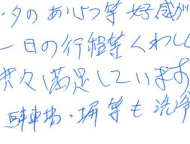 ・タのあいさつ等好感が
一日の行程等くわし
共々満足しています
駐車場・堀等も洗浄